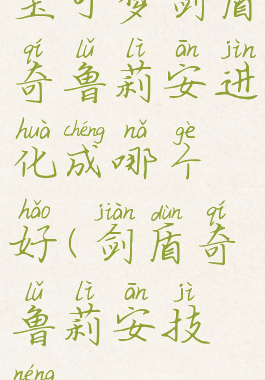 宝可梦剑盾
qí lǔ lì ān jìn
奇鲁莉安进
huà chéng nǎ gè
化成哪个
hǎo jiàn dùn qí
好(剑盾奇
lǔ lì ān jì
鲁莉安技
néng